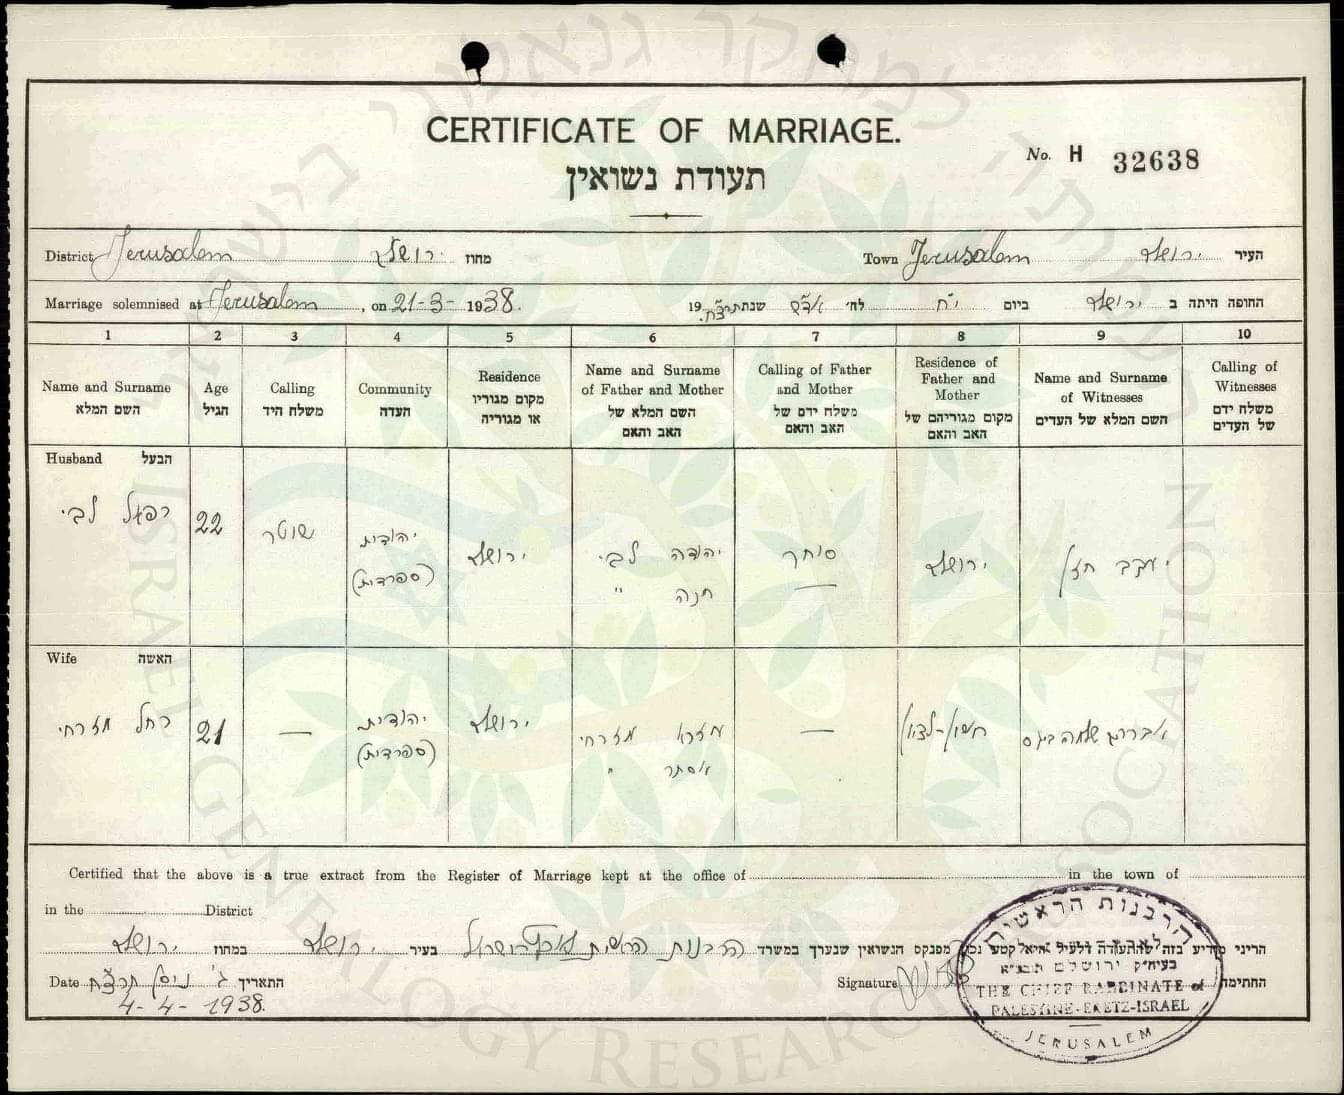 CERTIFICATE OF MARRIAGE.
תעודת נשואין
No. H 32638
District Jerusalem ירושלם מחוז
Town Jerusalem ירושלם העיר
Marriage solemnised at Jerusalem, on 21-3-1938.
החופה היתה ב ירושלם ביום י"ח לח' אד"ש שנת תרצ"ח 19
1 2 3 4 5 6 7 8 9 10
Name and Surname
השם המלא
Age
הגיל
Calling
משלח היד
Community
העדה
Residence
מקום מגוריו
או מגוריה
Name and Surname
of Father and Mother
השם המלא של
האב והאם
Calling of Father
and Mother
משלח ידם של
האב והאם
Residence of
Father and
Mother
מקום מגוריהם של
האב והאם
Name and Surname
of Witnesses
השם המלא של העדים
Calling of
Witnesses
משלח ידם
של העדים
Husband הבעל
רפאל לוי
22
שוטר
יהודית
(ספרדית)
ירושלם
יהודה לוי
חנה "
סוחר
—
ירושלם
יעקב חזן
Wife האשה
רחל מזרחי
21
—
יהודית
(ספרדית)
ירושלם
עזרא מזרחי
אסתר "
—
ראשון-לציון
אברהם שלמה
Certified that the above is a true extract from the Register of Marriage kept at the office of in the town of
in the District
הריני מודיע בזה שהתעודה דלעיל היא קטע נכון מפנקס הנשואין שנערך במשרד הרבנות הראשית לארץ ישראל בעיר ירושלם במחוז ירושלם
Date ג' ניסן תרצ"ח התאריך
4-4-1938.
Signature החתימה
הרבנות הראשית
לארץ-ישראל
בעיה"ק ירושלם תובב"א
THE CHIEF RABBINATE of
PALESTINE-ERETZ-ISRAEL
JERUSALEM
ISRAEL GENEALOGY RESEARCH ASSOCIATION